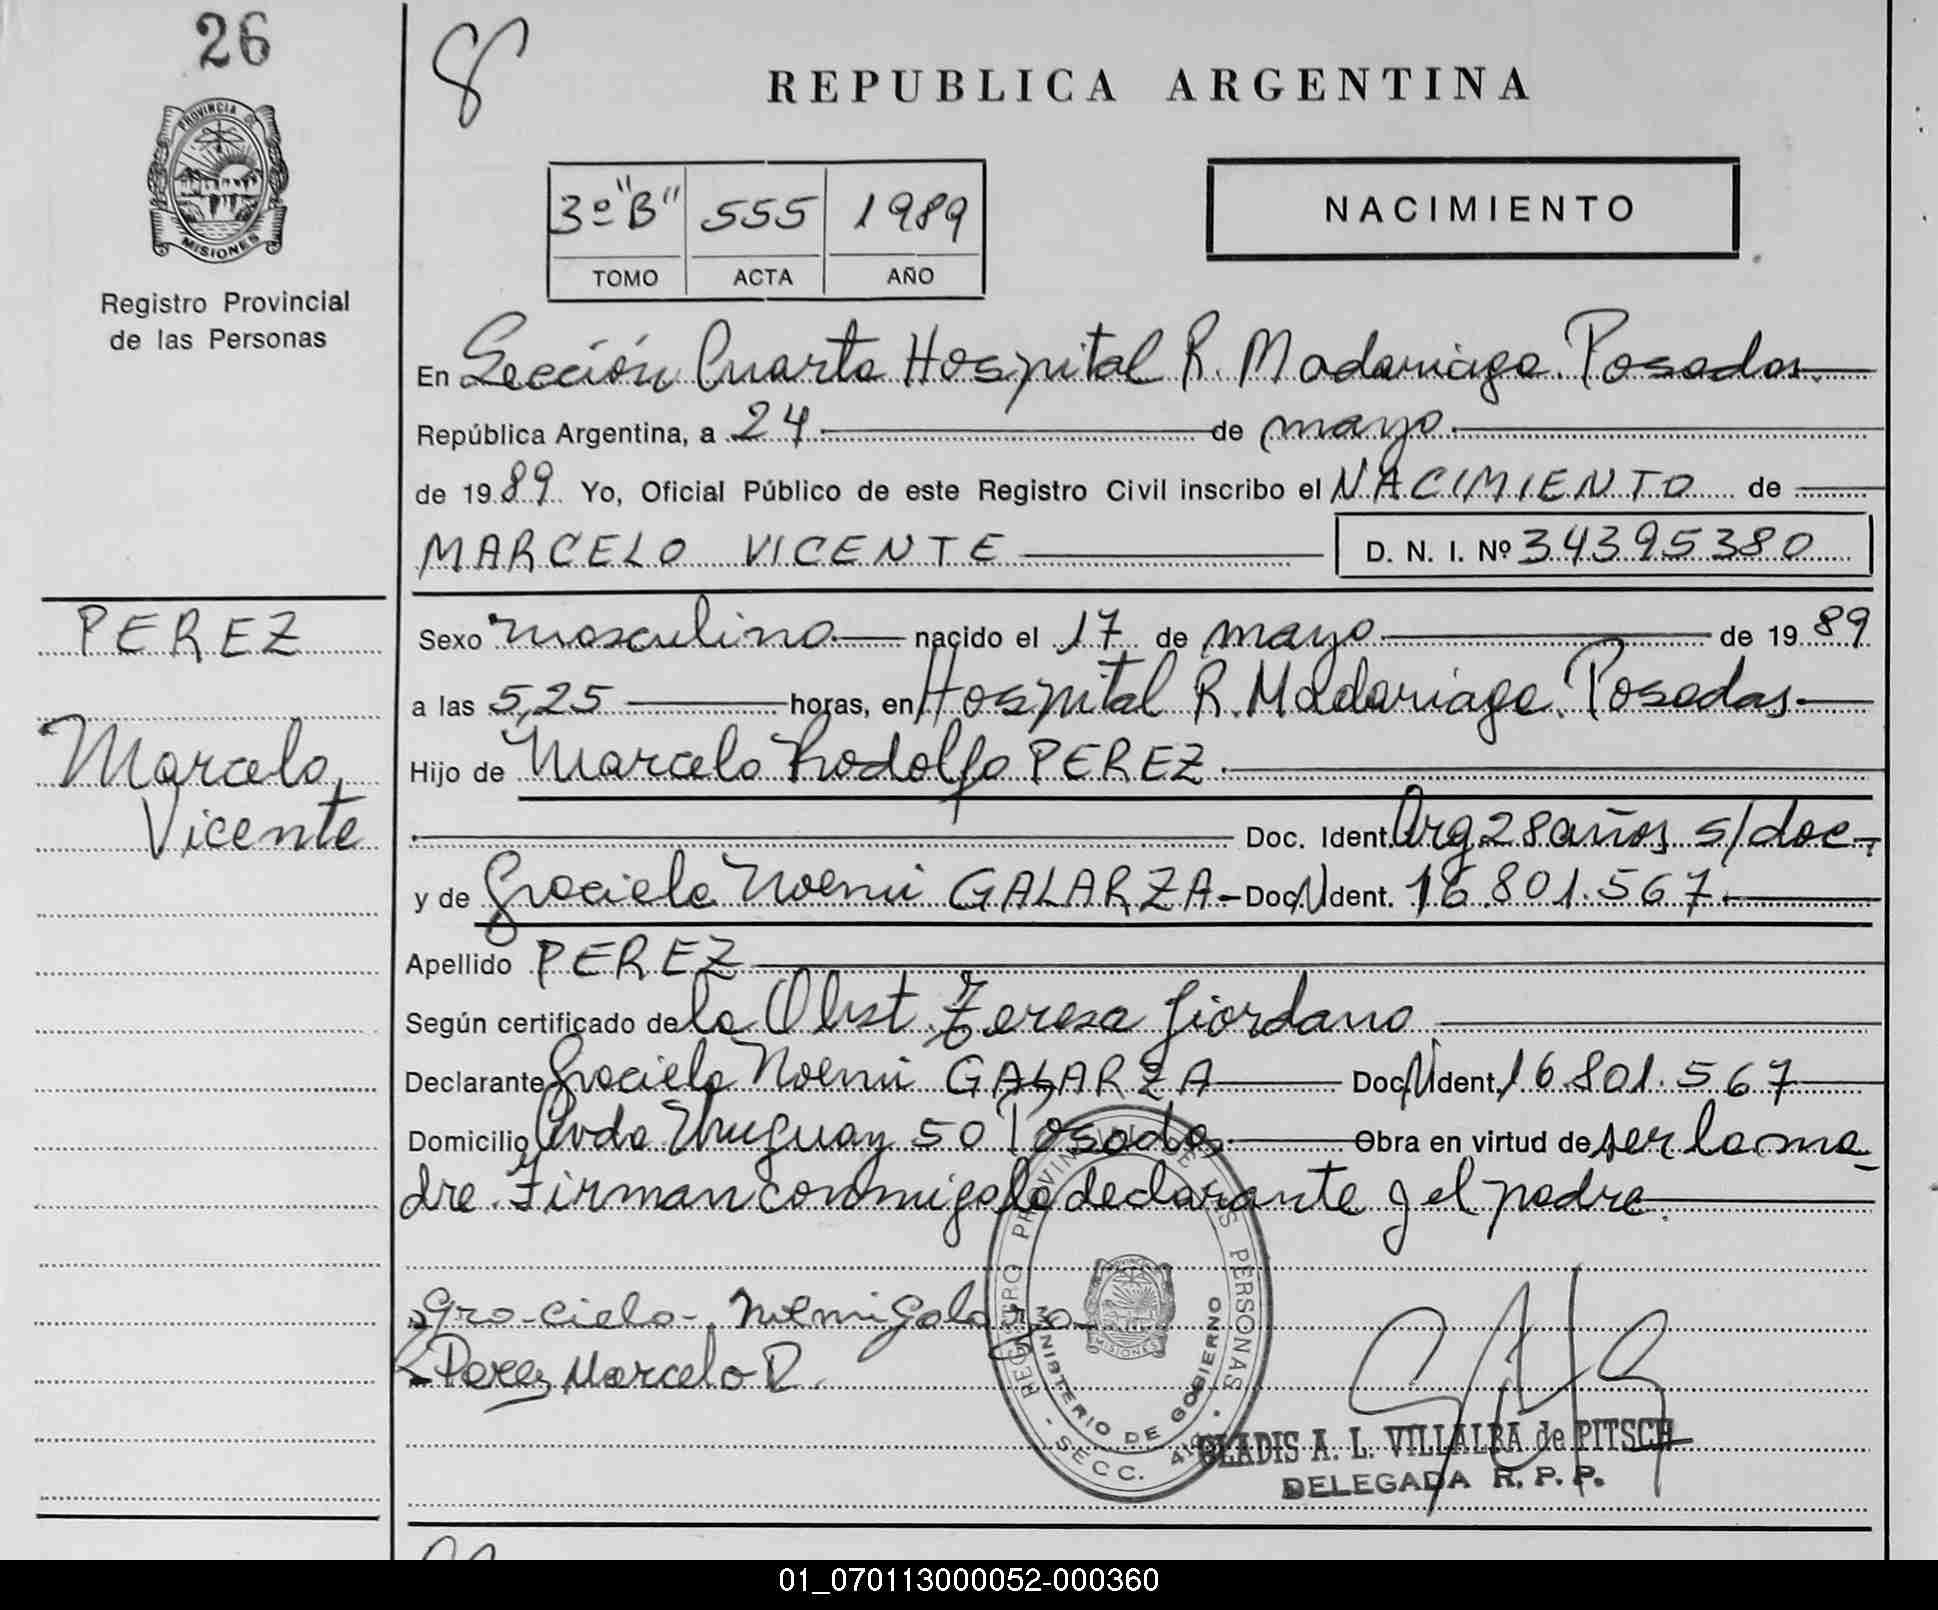 26
8
REPUBLICA ARGENTINA
PROVINCIA DE MISIONES
Registro Provincial
de las Personas
3º "B" 555 1989
TOMO ACTA AÑO
NACIMIENTO
En Sección Cuarta Hospital R. Madariaga. Posadas.
República Argentina, a 24 de mayo
de 1989 Yo, Oficial Público de este Registro Civil inscribo el NACIMIENTO de
MARCELO VICENTE D. N. I. Nº 34395380
PEREZ
Marcelo
Vicente
Sexo masculino nacido el 17 de mayo de 1989
a las 5,25 horas, en Hospital R. Madariaga. Posadas
Hijo de Marcelo Rodolfo PEREZ
Doc. Ident. Arg. 28 años s/doc.
y de Graciela Noemi GALARZA - Doc. N Ident. 16.801.567
Apellido PEREZ
Según certificado de la Obst. Teresa Giordano
Declarante Graciela Noemi GALARZA Doc. N Ident. 16.801.567
Domicilio Avda Uruguay 50 Posadas Obra en virtud de ser la ma-
dre. Firman conmigo la declarante y el padre.
Gra-ciela- Nœmi Galarza-
Perez Marcelo R.
REGISTRO PROVINCIAL DE LAS PERSONAS
MINISTERIO DE GOBIERNO
SECC. 4ta
MISIONES
GLADIS A. L. VILLALBA de PITSCH
DELEGADA R. P. P.
01_070113000052-000360